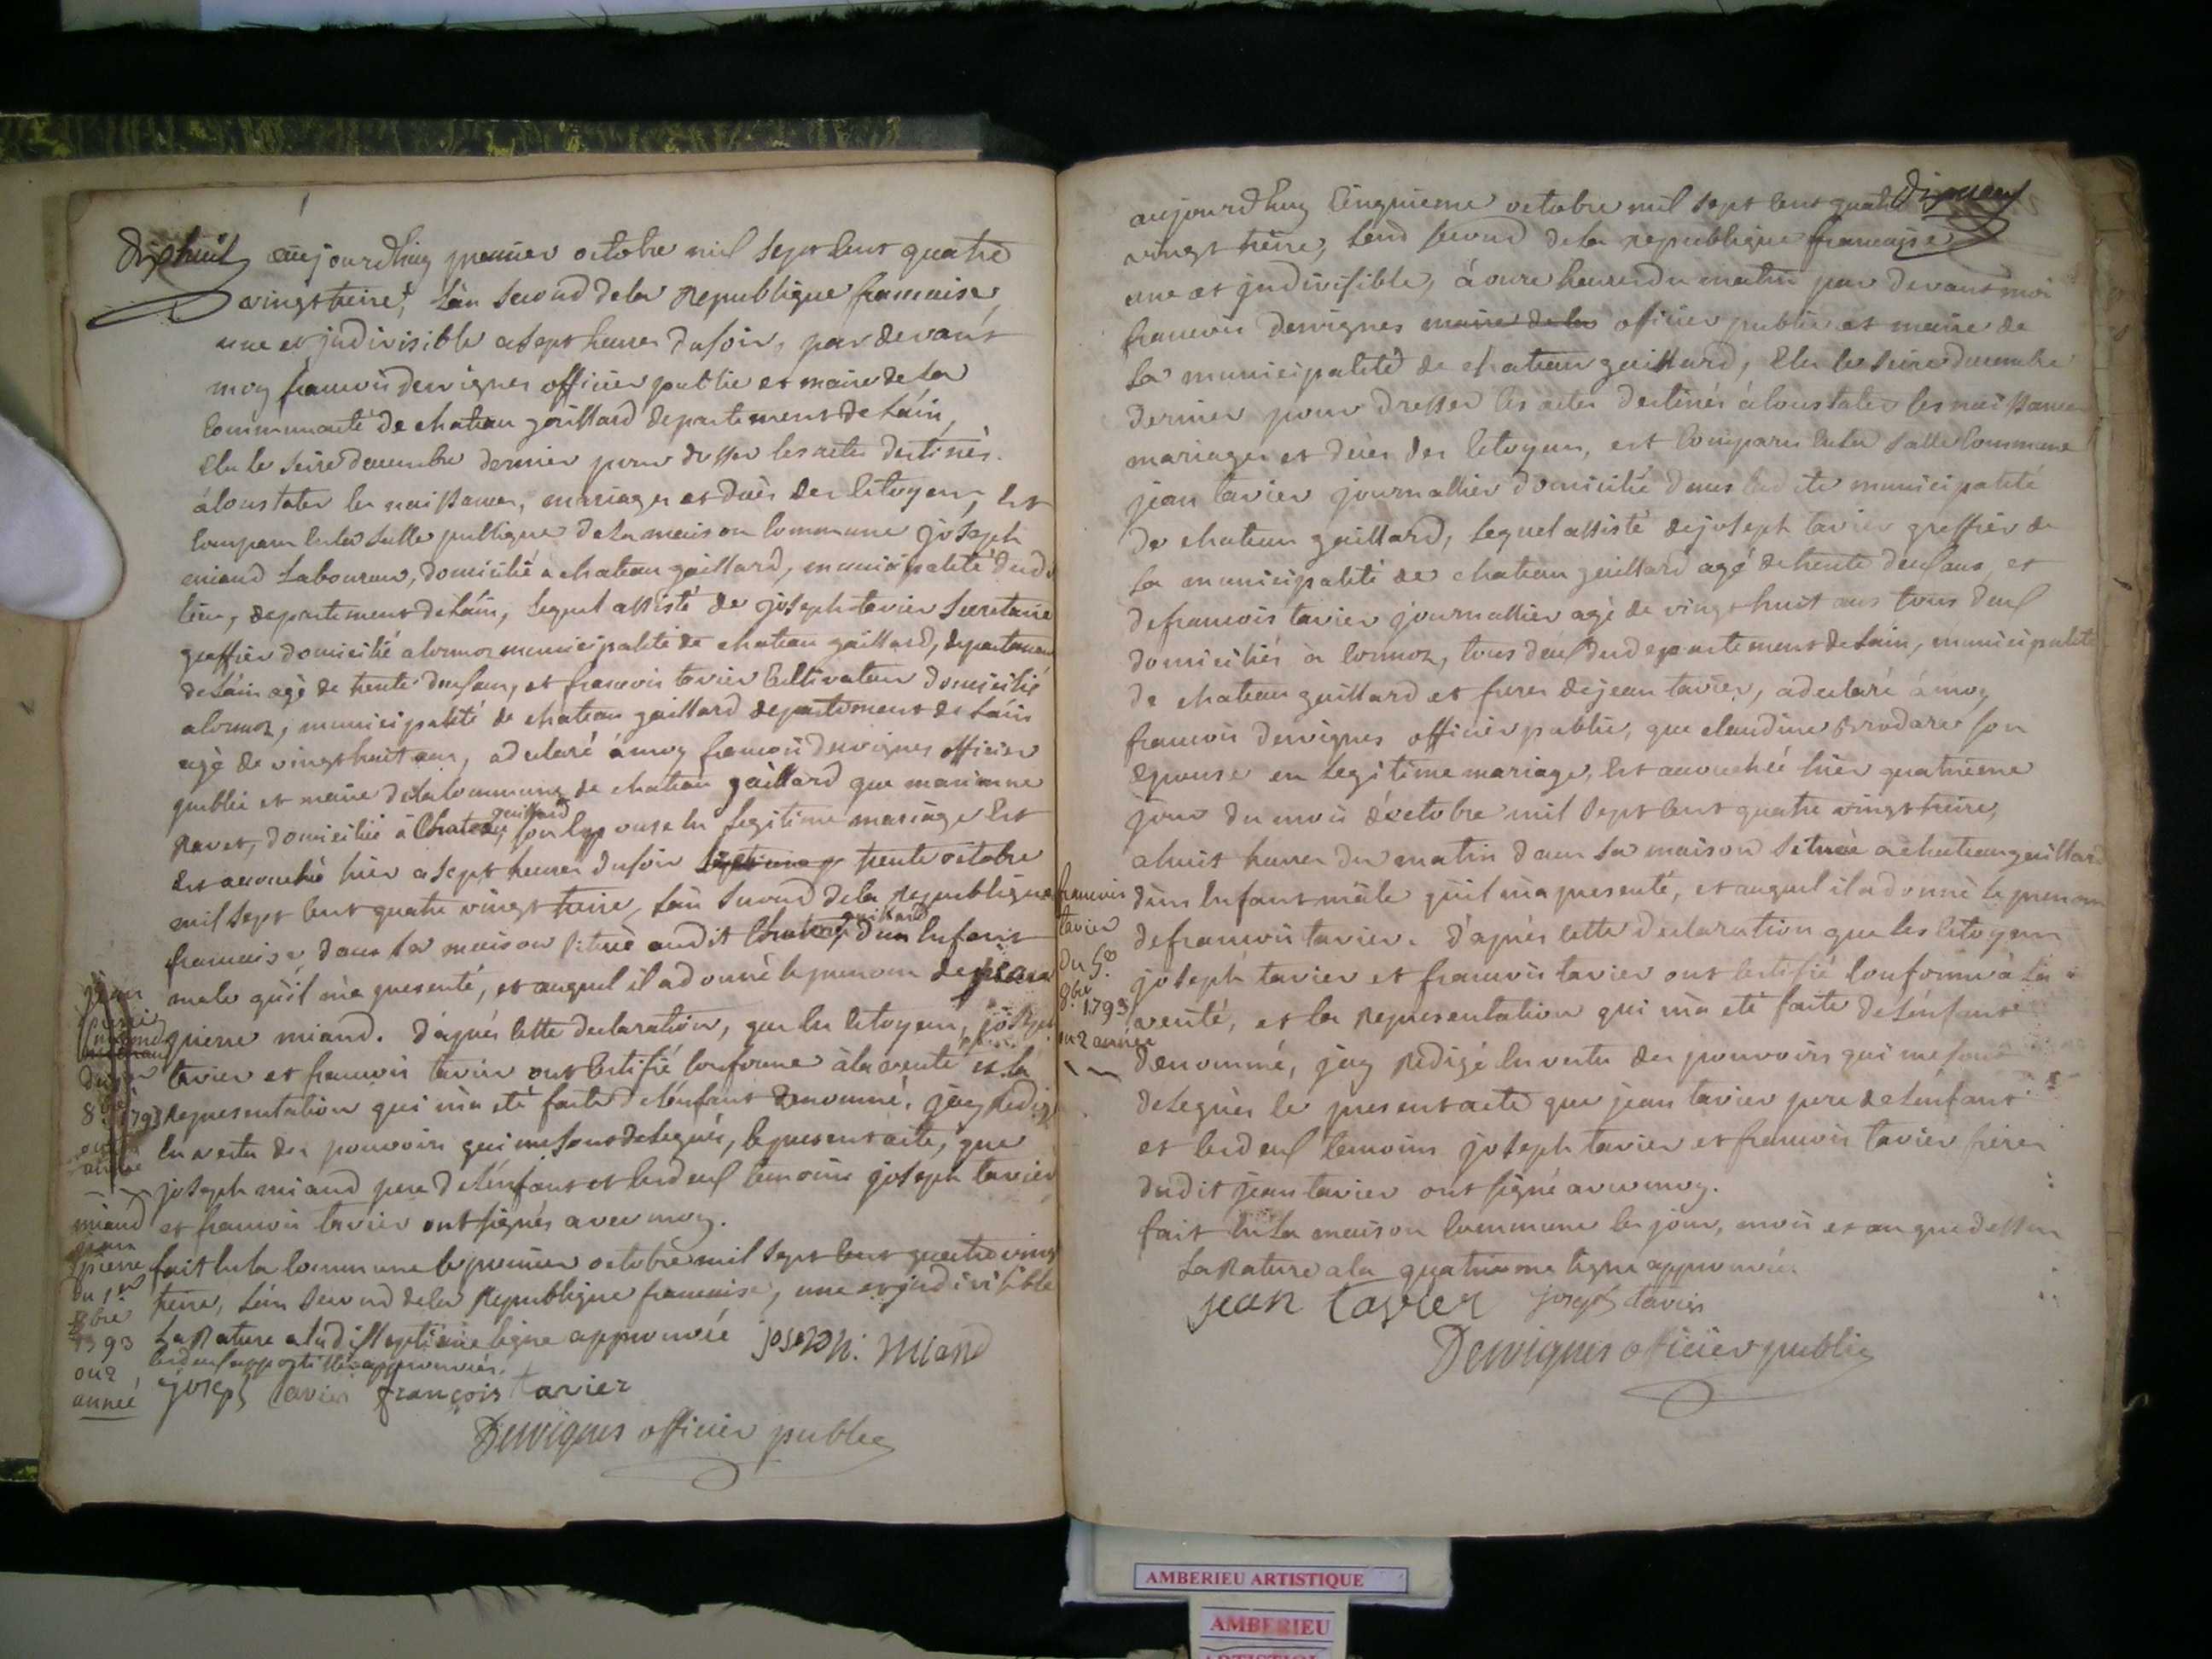 dixhuit aujourdhuy premier octobre mil sept cent quatre
vingt treize, l'an second de la Republique francaise,
une et jndivisible a sept heures du soir, par devant
moy francois dervignes officier public et maire de la
communauté de chateau gaillard departement de l'ain,
elu le seize decembre dernier pour dresser les actes destinés
à constater les naissances, mariages et décès des citoyens, est
comparu en la salle publique de la maison commune joseph
miand laboureur, domicilié a chateau gaillard, municipalité dudit
lieu, departement de l'ain, lequel assisté de joseph tavier secretaire
greffier domicilié a cormoz municipalité de chateau gaillard, departement
de l'ain agé de trente deux ans, et francois tavier cultivateur domicilié
a cormoz, municipalité de chateau gaillard departement de l'ain
agé de vingt huit ans, a declaré à moy francois dervignes officier
public et maire de la commune de chateau gaillard que marianne
ravet, domicilié à Chateau gaillard, son epouse en legitime mariage est
est accouché hier a sept heures du soir trente octobre
mil sept cent quatre vingt treize, l'an second de la republique
francaise, dans la maison située audit Chateau gaillard d'un enfant
male qu'il m'a presenté, et auquel il a donné le prenom de jean
pierre miand. d'après cette declaration, que les citoyens, joseph
tavier et francois tavier ont certifié conforme à la verité et la
representation qui m'a été faite de l'enfant denommé, j'ay redigé
en vertu des pouvoirs qui me sont delegués, le present acte, que
joseph miand pere de l'enfant et les deux temoins joseph tavier
et francois tavier ont signés avec moy.
fait en la commune le premier octobre mil sept cent quatre vingt
treize, l'an second de la Republique francaise, une et jndivisible
la Rature a la dixseptième ligne approuvée joseph miand
les deux appostilles approuvées.
joseph tavier françois tavier
Dervignes officier public
miand
jean
pierre
du 1er
8bre
1793
ou 2
année
dixneuf
aujourdhuy cinquieme octobre mil sept cent quatre
vingt treize, l'and second de la republique francaise
une et jndivisible, à onze heures du matin par devant moi
francois dervignes maire de la officier public et maire de
la municipalité de chateau gaillard, elu le seize decembre
dernier pour dresser les actes destinés à constater les naissances
mariages et décès des citoyens, est comparu en la salle commune
jean tavier journallier domicilié dans ladite municipalité
de chateau gaillard, lequel assisté de joseph tavier greffier de
la municipalité de chateau gaillard agé de trente deux ans, et
de francois tavier journallier agé de vingt huit ans tous deux
domiciliés à cormoz, tous deux du departement de l'ain, municipalité
de chateau gaillard et freres de jean tavier, a declaré à moy
francois dervignes officier public, que claudine brodare son
epouse en legitime mariage, est accouchée hier quatrieme
jour du mois d'octobre mil sept cent quatre vingt treize,
a huit heures du matin dans sa maison située a chateau gaillard
d'un enfant mâle qu'il m'a presenté, et auquel il a donné le prenom
de francois tavier. d'après cette declaration que les citoyens
joseph tavier et francois tavier ont certifié conforme à la
verité, et la representation qui m'a été faite de l'enfant
denommé, j'ay redigé en vertu des pouvoirs qui me sont
delegués le present acte que jean tavier pere de l'enfant
et les deux temoins joseph tavier et francois tavier freres
dudit jean tavier ont signé avec moy.
fait en la maison commune les jour, mois et an que dessus
la Rature a la quatrieme ligne approuvée
jean tavier joseph tavier
Dervignes officier public
francois
tavier
du 5e
8bre
1793
ou 2 année
AMBERIEU ARTISTIQUE
AMBERIEU
ARTISTIQUE